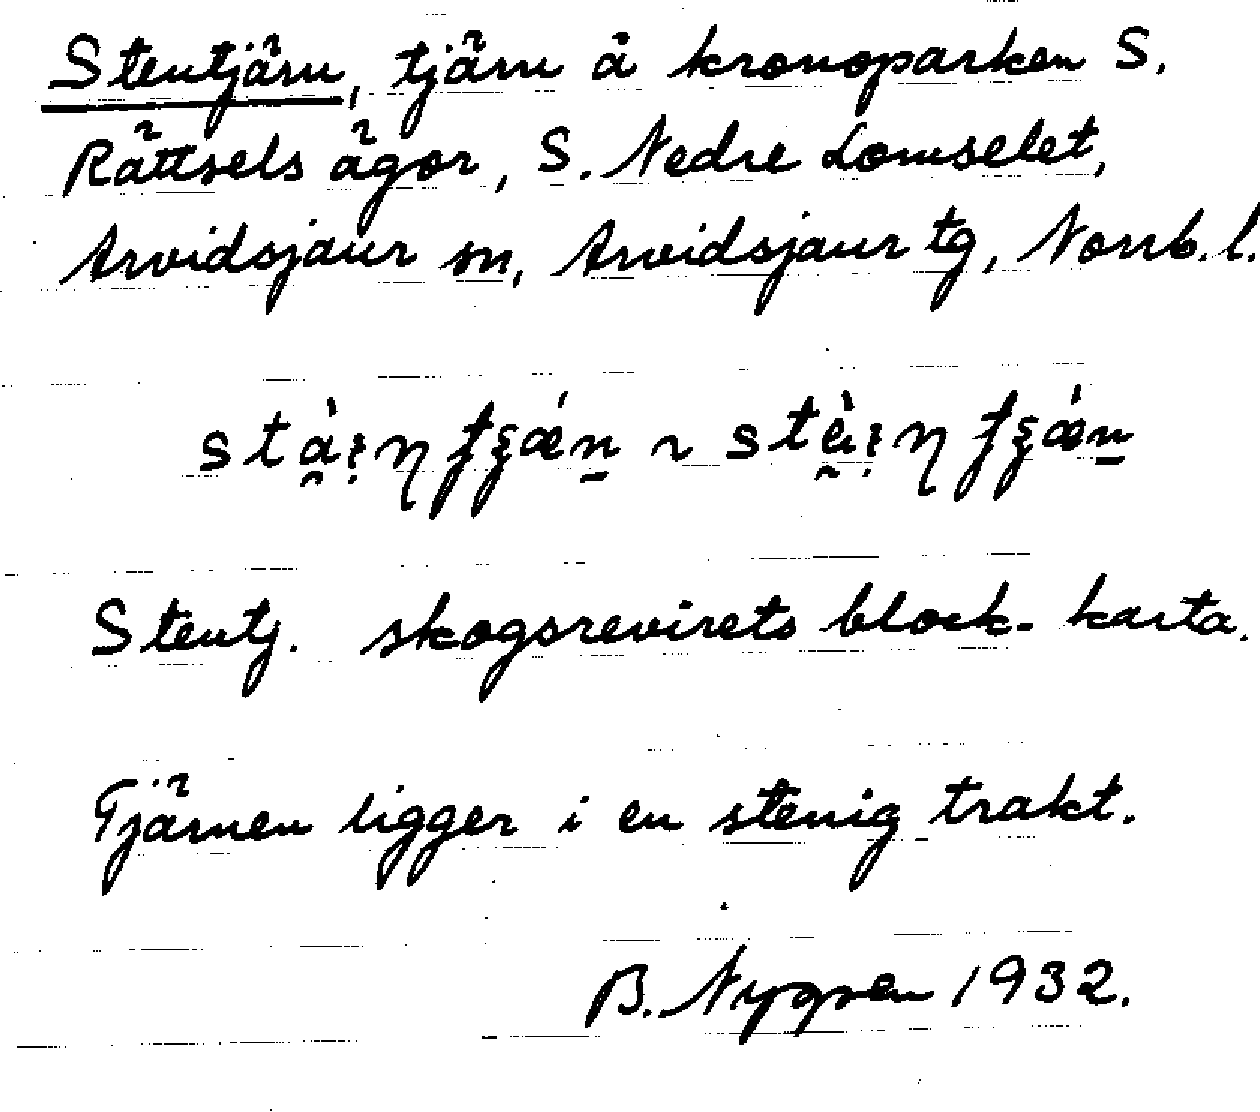 Stentjärn, tjärn å kronoparken S.
Rättsels ägor, S. Nedre Lomselet,
Arvidsjaur sn, Arvidsjaur tg, Norrb. l.
Stentj. skogsrevirets block-karta.
Tjärnen ligger i en stenig trakt.
B. Nygren 1932.